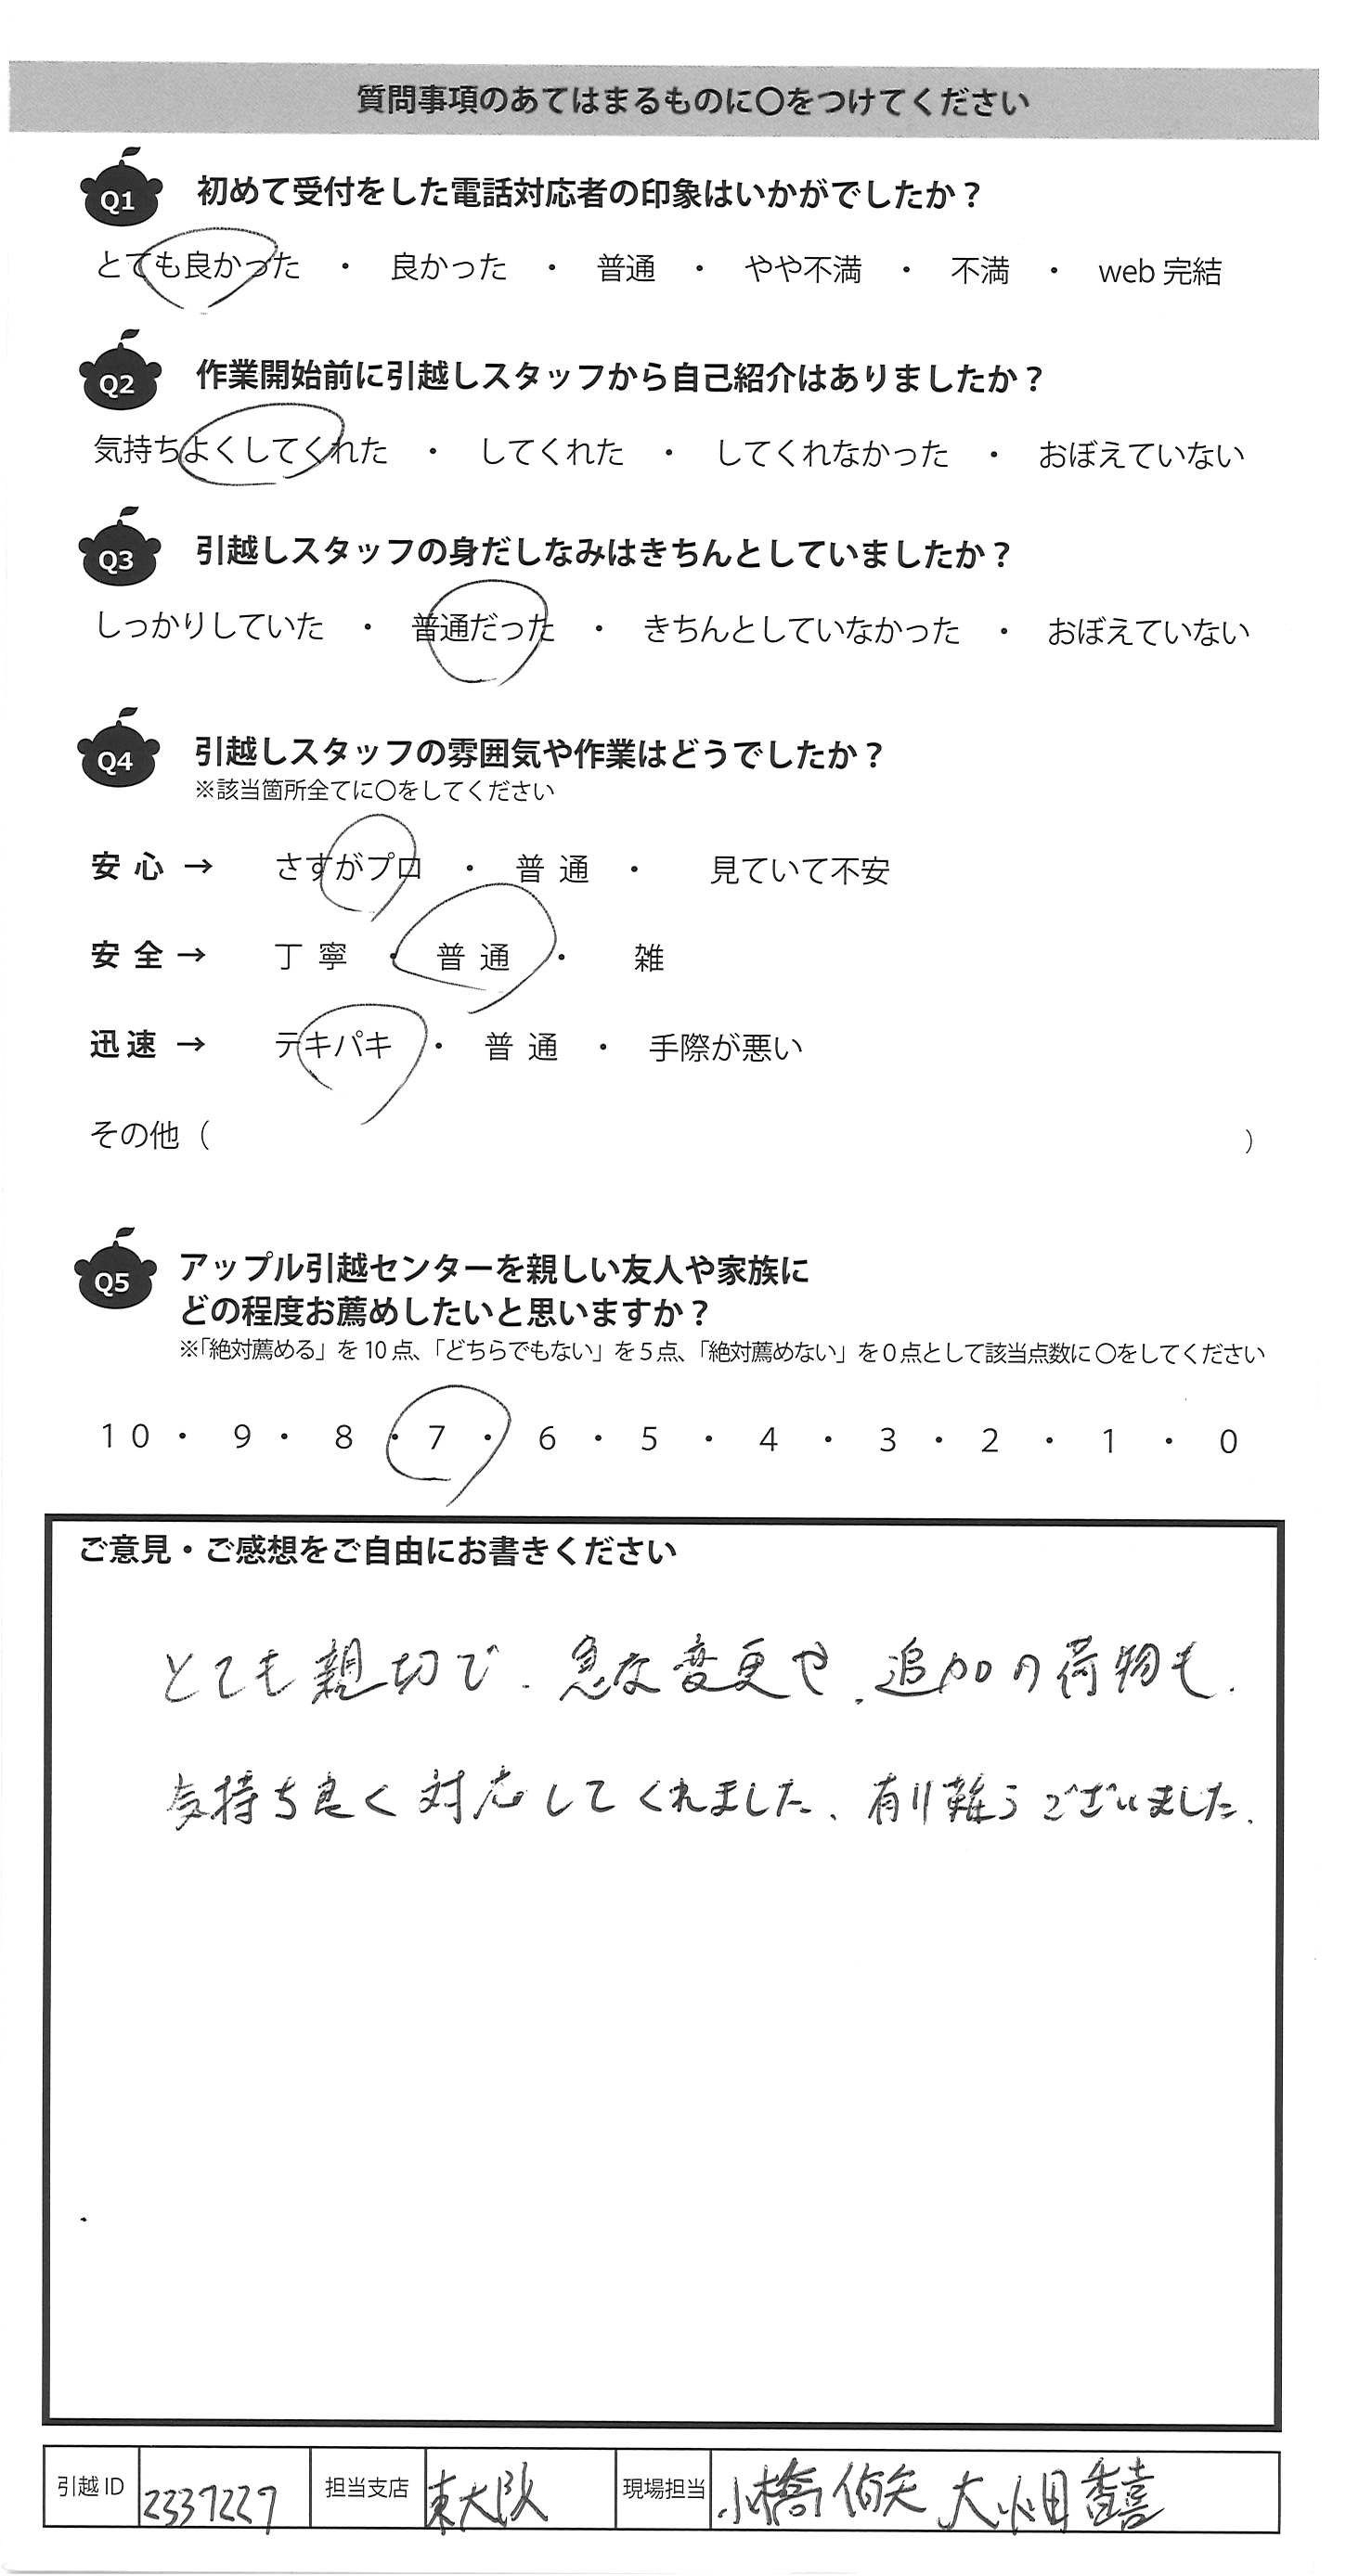 質問事項のあてはまるものに〇をつけてください
Q1 初めて受付をした電話対応者の印象はいかがでしたか？
とても良かった ・ 良かった ・ 普通 ・ やや不満 ・ 不満 ・ web 完結
Q2 作業開始前に引越しスタッフから自己紹介はありましたか？
気持ちよくしてくれた ・ してくれた ・ してくれなかった ・ おぼえていない
Q3 引越しスタッフの身だしなみはきちんとしていましたか？
しっかりしていた ・ 普通だった ・ きちんとしていなかった ・ おぼえていない
Q4 引越しスタッフの雰囲気や作業はどうでしたか？
※該当箇所全てに〇をしてください
安心 → さすがプロ ・ 普通 ・ 見ていて不安
安全 → 丁寧 ・ 普通 ・ 雑
迅速 → テキパキ ・ 普通 ・ 手際が悪い
その他（ ）
Q5 アップル引越センターを親しい友人や家族に
どの程度お薦めしたいと思いますか？
※「絶対薦める」を 10 点、「どちらでもない」を 5 点、「絶対薦めない」を 0 点として該当点数に〇をしてください
10 ・ 9 ・ 8 ・ 7 ・ 6 ・ 5 ・ 4 ・ 3 ・ 2 ・ 1 ・ 0
ご意見・ご感想をご自由にお書きください
とても親切で、急な変更や、追加の荷物も、
気持ち良く対応してくれました、有り難うございました、
引越 ID 2337227 担当支店 東大阪 現場担当 小橋 大畑